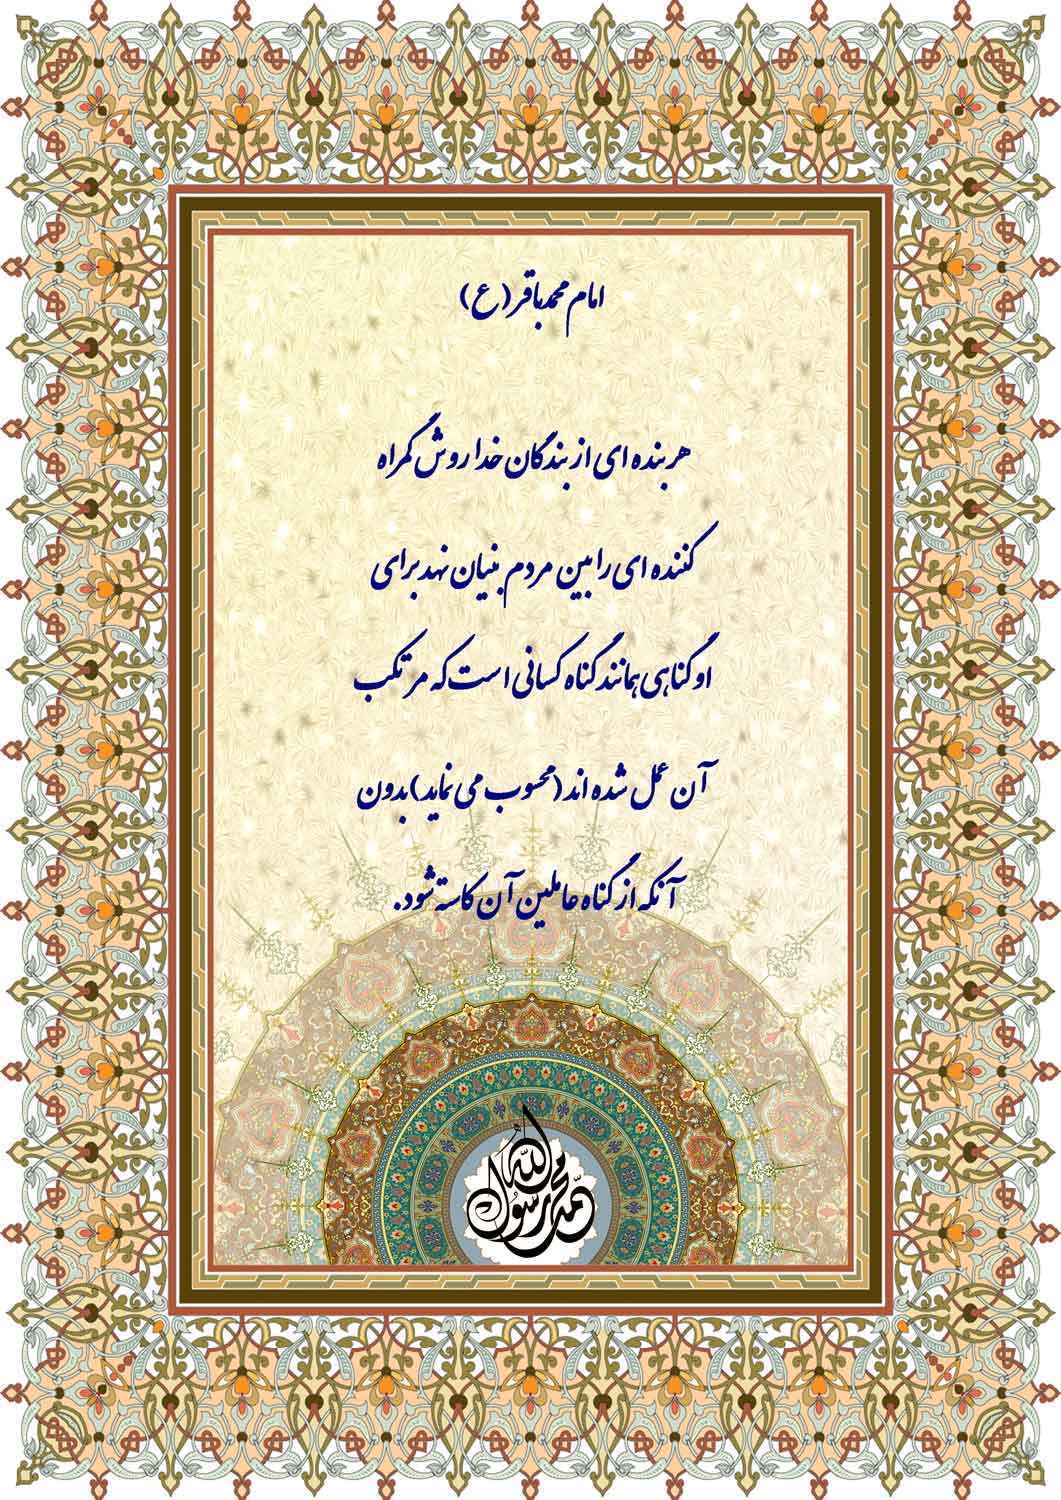 امام محمد باقر (ع)
هر بنده ای از بندگان خدا روش گمراه
کننده ای را بین مردم بنیان نهد برای
او گناهی همانند گناه کسانی است که مرتکب
آن عمل شده اند (محسوب می نماید) بدون
آنکه از گناه عاملین آن کاسته شود.
محمد رسول الله